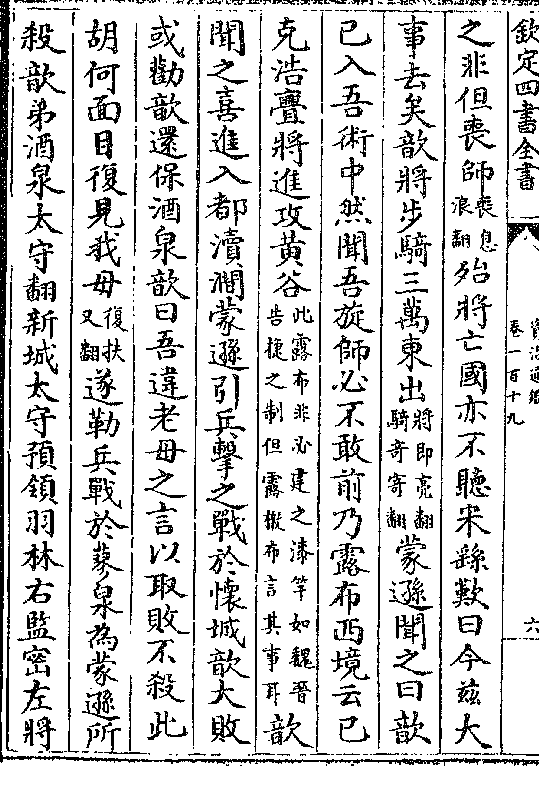 欽定四書全書
資治通鑑
卷一百十九
六
之非但喪師喪息浪翻殆將亡國亦不聽宋繇歎曰今兹大
事去矣歆將步騎三萬東出將即亮翻騎奇寄翻蒙遜聞之曰歆
已入吾術中然聞吾旋師必不敢前乃露布西境云已
克浩亹將進攻黃谷此露布非必建之漆竿如魏晉告捷之制但露檄布言其事耳歆
聞之喜進入都瀆澗蒙遜引兵擊之戰於懷城歆大敗
或勸歆還保酒泉歆曰吾違老母之言以取敗不殺此
胡何面目復見我母復扶又翻遂勒兵戰於蓼泉為蒙遜所
殺歆弟酒泉太守翻新城太守預領羽林右監密左將